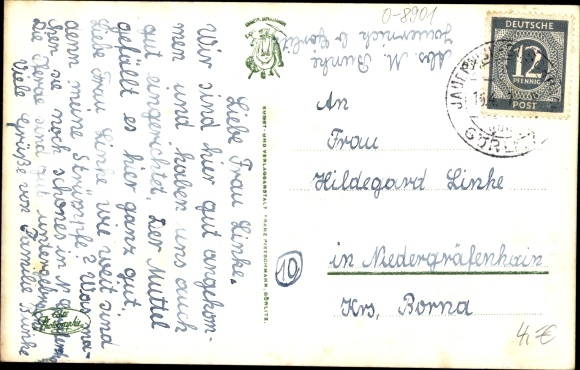 0-8901
Abs. M. Bunke
Jauernick b. Görlitz
DEUTSCHE
12
PFENNIG
POST
JAUERNICK
GÖRLITZ
An
Frau
Hildegard Linke
in Niedergräfenhain
Krs. Borna
10
4,- €
KUNST- UND VERLAGSANSTALT FRANZ PIETSCHMANN, GÖRLITZ.
Liebe Frau Linke.
Wir sind hier gut angekom-
men und haben uns auch
gut eingerichtet. Der Muttel
gefällt es hier ganz gut.
Liebe Frau Linke wie weit sind
denn meine Strümpfe? Was ma-
chen sie noch schönes in N.
Die Hände sind
Viele Grüße von Familie Bunke
Echte
Photographie